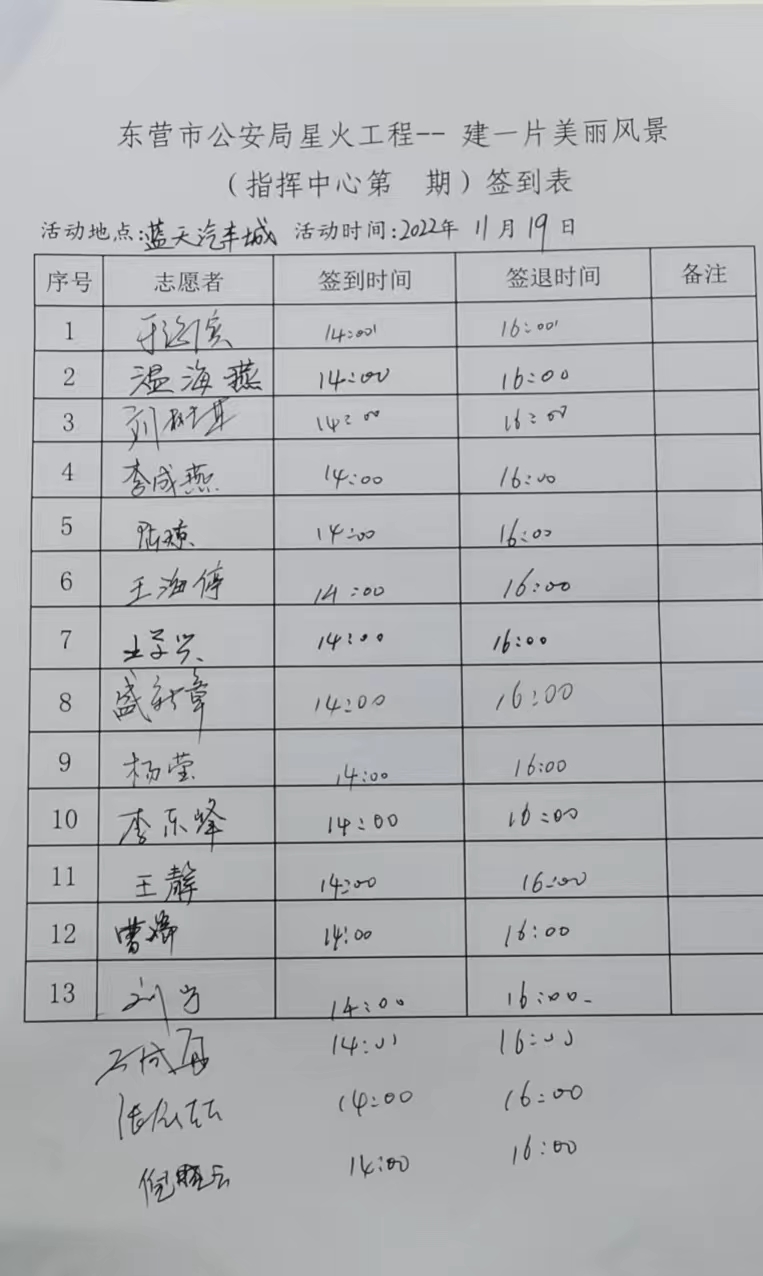 东营市公安局星火工程-- 建一片美丽风景
（指挥中心第 期）签到表
活动地点:蓝天汽车城 活动时间:2022年 11月 19日
序号 志愿者 签到时间 签退时间 备注
1 14:00 16:00
2 温海燕 14:00 16:00
3 14:00 16:00
4 李成燕 14:00 16:00
5 陆琼 14:00 16:00
6 王海停 14:00 16:00
7 14:00 16:00
8 盛新章 14:00 16:00
9 杨莹 14:00 16:00
10 李东峰 14:00 16:00
11 王静 14:00 16:00
12 曹娜 14:00 16:00
13 14:00 16:00
14:00 16:00
14:00 16:00
14:00 16:00